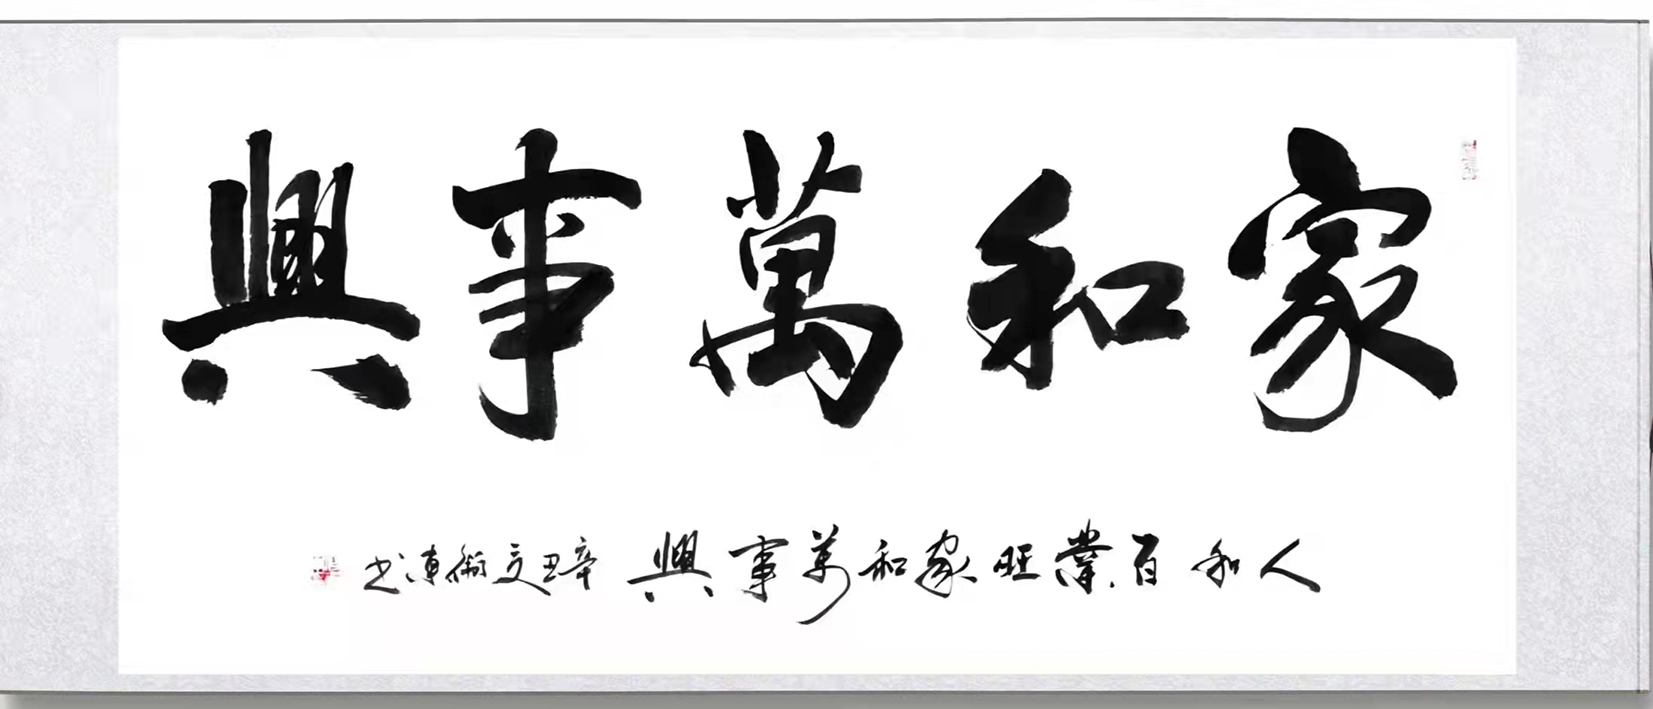 家和萬事興
人和百業旺家和萬事興 辛丑文衛東书